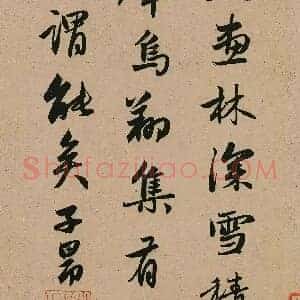 畫林深雪積
鳥翔集有
謂能矣子昂
Shufaziliao.COM